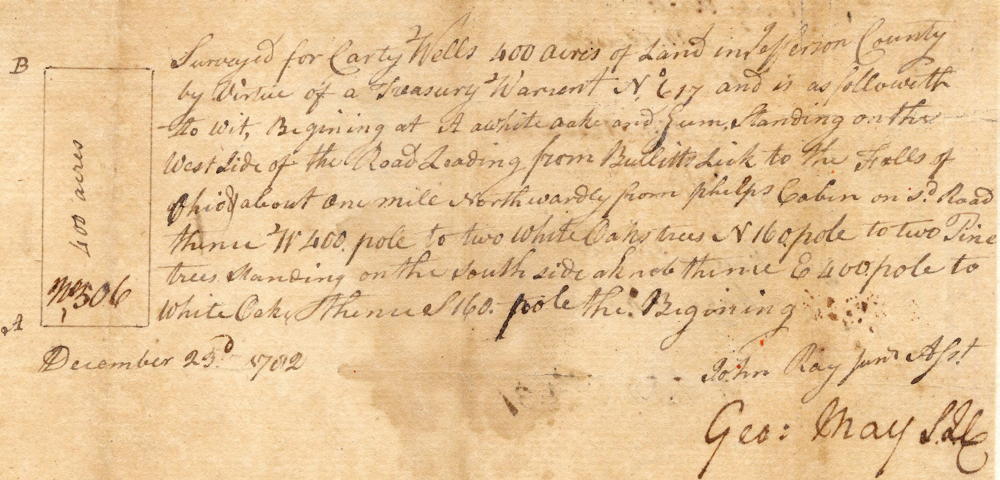 B
Surveyd for Carty Wells 400 acres of Land in Jefferson County
by Virtue of a Treasury Warrent No. and is as followith
to wit, Begining at A a white oake and Gum, Standing on the
West Side of the Road Leading from Bullitts Lick to the Falls of
Ohio about one mile Northwardly from phelps Cabin on sd. Road
thence W 400. pole to two White Oaks trees N 160 pole to two Pine
trees standing on the South side a knob thence E 400. pole to
White Oak, thence S 160. pole the Begining
400 acres
506
A
December 23d 1782
John Ray Junr Asst.
Geo: May SJC